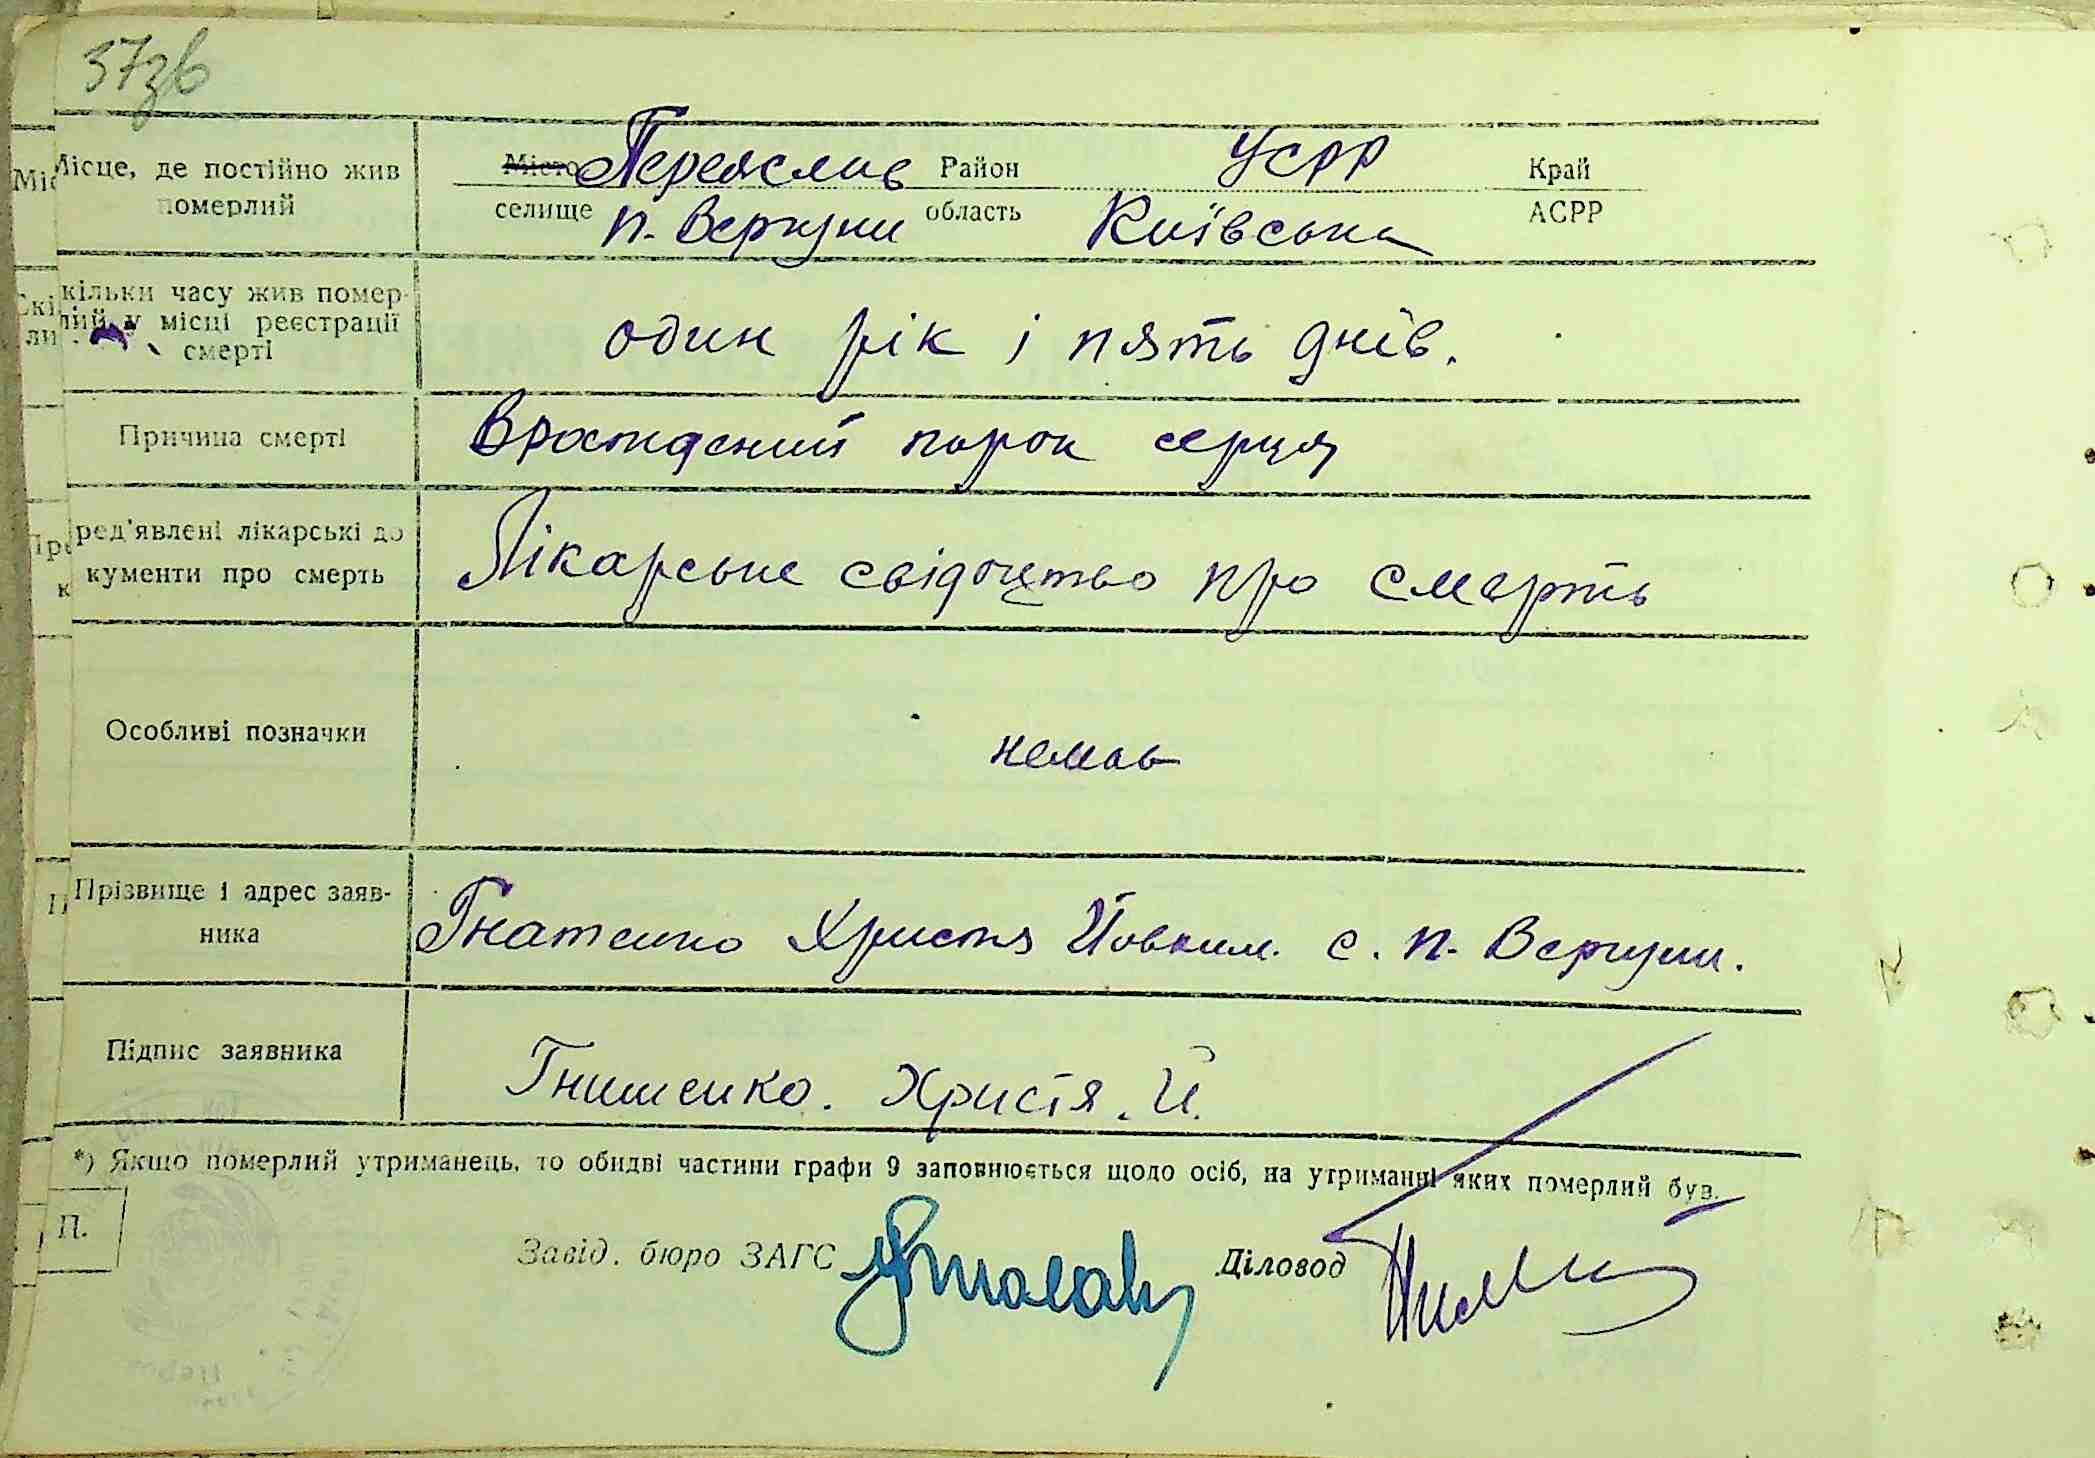 37зв
Місце, де постійно жив
померлий
Місто Переяслав Район УСРР Край
селище п. Вергуни область Київська АСРР
Скільки часу жив помер-
лий у місці реєстрації
смерті
один рік і пять днів.
Причина смерті
Врожденний порок серця
Пред'явлені лікарські до
кументи про смерть
Лікарське свідоцтво про смерть
Особливі позначки
немає
Прізвище і адрес заяв-
ника
Гнатенко Христя Йовким. с. п. Вергуни.
Підпис заявника
Гнатенко. Христя. Й.
*) Якщо померлий утриманець, то обидві частини графи 9 заповнюється щодо осіб, на утриманні яких померлий був.
П.
Завід. бюро ЗАГС Діловод